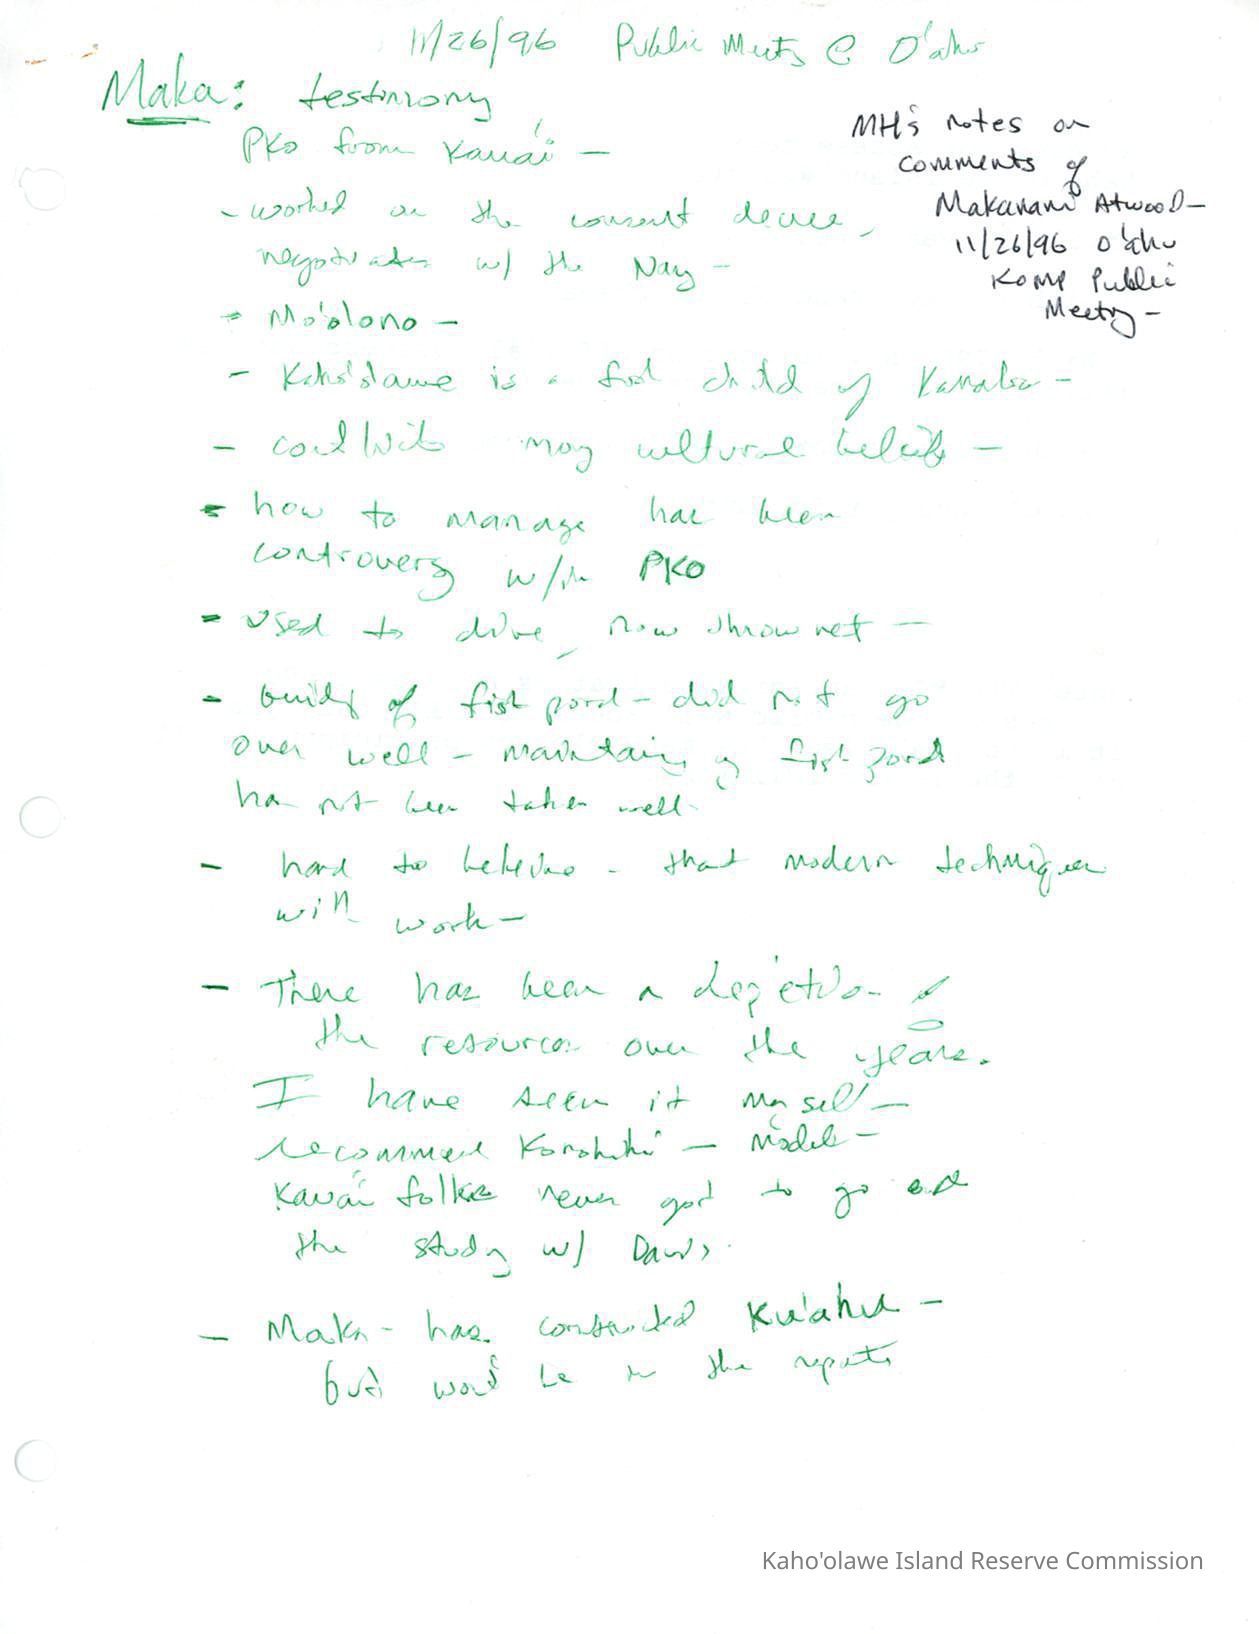 11/26/96 Public Meetg @ O'ahu
Maka: testimony
PKO from Kaua'i —
MH's notes on
comments of
Makanani Atwood —
11/26/96 O'ahu
KOMP Public
Meetg —
- worked on the consent decree,
negotiates w/ the Navy —
- Mo'olono —
- Kaho'olawe is a first child of Kanaloa —
- may cultural beliefs —
- how to manage has been
controversy w/in PKO
- used to dive, now throw net —
- buildg of fish pond - did not go
over well - maintaing of fish pond
has not been taken well
- hard to believe - that modern techniques
will work —
- There has been a depletion of
the resources over the years.
I have seen it myself —
recommend Konohiki — model —
Kaua'i folks never got to go
the study w/ Davis.
- Maka - has constructed Ku'ahu —
but won't be in the reports
Kaho'olawe Island Reserve Commission